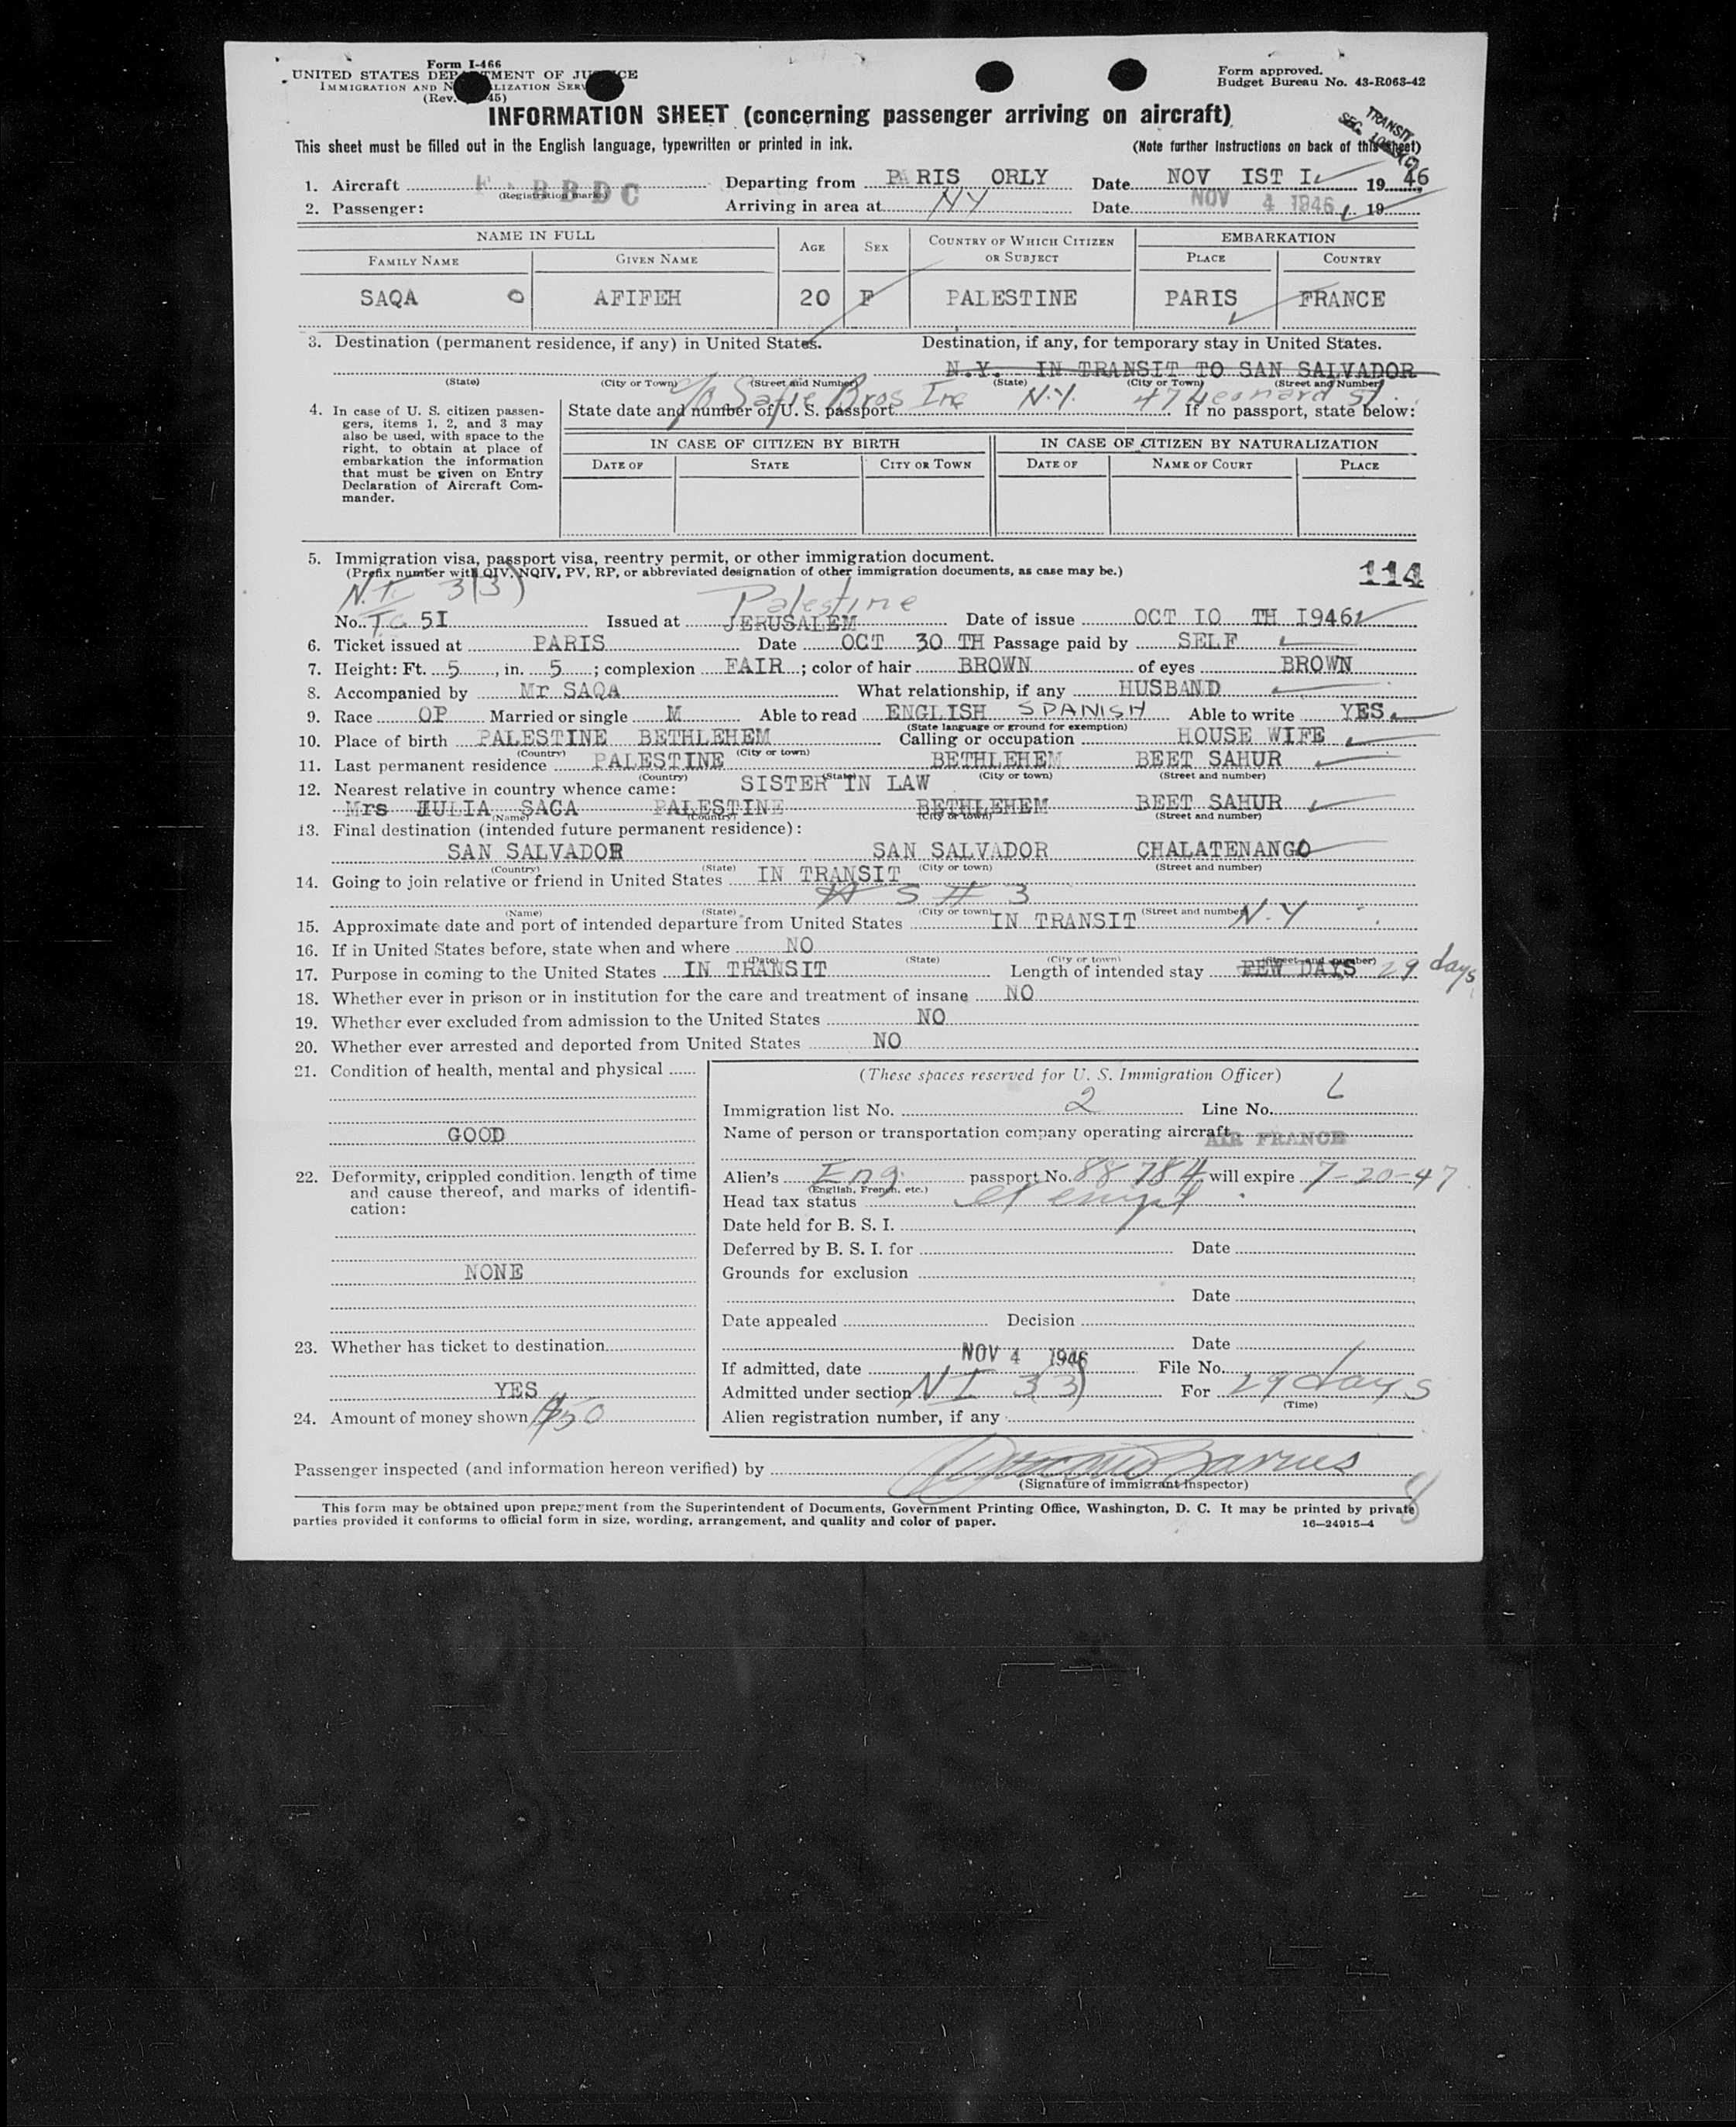 Form I-466
UNITED STATES DEPARTMENT OF JUSTICE
IMMIGRATION AND NATURALIZATION SERVICE
(Rev. 45)
Form approved.
Budget Bureau No. 43-R063-42
INFORMATION SHEET (concerning passenger arriving on aircraft)
TRANSIT
SEC.
This sheet must be filled out in the English language, typewritten or printed in ink. (Note further instructions on back of this sheet)
1. Aircraft F-BBDC Departing from PARIS ORLY Date NOV IST I 19 46
(Registration marks)
2. Passenger: Arriving in area at NY Date NOV 4 1946 19
NAME IN FULL AGE SEX COUNTRY OF WHICH CITIZEN OR SUBJECT EMBARKATION
FAMILY NAME GIVEN NAME PLACE COUNTRY
SAQA O AFIFEH 20 F PALESTINE PARIS FRANCE
3. Destination (permanent residence, if any) in United States. Destination, if any, for temporary stay in United States.
N.Y. IN TRANSIT TO SAN SALVADOR
(State) (City or Town) (Street and Number) (State) (City or Town) (Street and Number)
c/o Safie Bros Inc N.Y. 47 Leonard St.
4. In case of U. S. citizen passengers, items 1, 2, and 3 may also be used, with space to the right, to obtain at place of embarkation the information that must be given on Entry Declaration of Aircraft Commander.
State date and number of U. S. passport If no passport, state below:
IN CASE OF CITIZEN BY BIRTH IN CASE OF CITIZEN BY NATURALIZATION
DATE OF STATE CITY OR TOWN DATE OF NAME OF COURT PLACE
5. Immigration visa, passport visa, reentry permit, or other immigration document.
(Prefix number with QIV, NQIV, PV, RP, or abbreviated designation of other immigration documents, as case may be.)
114
N.I. 3(3) Palestine
No. T.C. 5I Issued at JERUSALEM Date of issue OCT IO TH I946
6. Ticket issued at PARIS Date OCT 30 TH Passage paid by SELF
7. Height: Ft. 5, in. 5; complexion FAIR; color of hair BROWN of eyes BROWN
8. Accompanied by Mr SAQA What relationship, if any HUSBAND
9. Race OP Married or single M Able to read ENGLISH SPANISH Able to write YES
(State language or ground for exemption)
10. Place of birth PALESTINE BETHLEHEM Calling or occupation HOUSE WIFE
(Country) (City or town)
11. Last permanent residence PALESTINE BETHLEHEM BEET SAHUR
(Country) (State) (City or town) (Street and number)
12. Nearest relative in country whence came: SISTER IN LAW
Mrs JULIA SACA PALESTINE BETHLEHEM BEET SAHUR
(Name) (Country) (City or town) (Street and number)
13. Final destination (intended future permanent residence):
SAN SALVADOR SAN SALVADOR CHALATENANGO
(Country) (State) (City or town) (Street and number)
14. Going to join relative or friend in United States IN TRANSIT
S # 3
(Name) (State) (City or town) (Street and number)
15. Approximate date and port of intended departure from United States IN TRANSIT N.Y
16. If in United States before, state when and where NO
(Date) (State) (City or town) (Street and number)
17. Purpose in coming to the United States IN TRANSIT Length of intended stay FEW DAYS 29 days
18. Whether ever in prison or in institution for the care and treatment of insane NO
19. Whether ever excluded from admission to the United States NO
20. Whether ever arrested and deported from United States NO
21. Condition of health, mental and physical
GOOD
22. Deformity, crippled condition, length of time and cause thereof, and marks of identification:
NONE
23. Whether has ticket to destination
YES
24. Amount of money shown $50
(These spaces reserved for U. S. Immigration Officer)
Immigration list No. 2 Line No. 6
Name of person or transportation company operating aircraft AIR FRANCE
Alien's Eng. passport No. 88784 will expire 7-20-47
(English, French, etc.)
Head tax status exempt
Date held for B. S. I.
Deferred by B. S. I. for Date
Grounds for exclusion
Date
Date appealed Decision
Date
If admitted, date NOV 4 1946 File No.
Admitted under section NI 33) For 29 days
(Time)
Alien registration number, if any
Passenger inspected (and information hereon verified) by
(Signature of immigrant inspector)
8
This form may be obtained upon prepayment from the Superintendent of Documents, Government Printing Office, Washington, D. C. It may be printed by private
parties provided it conforms to official form in size, wording, arrangement, and quality and color of paper. 16—24915-4